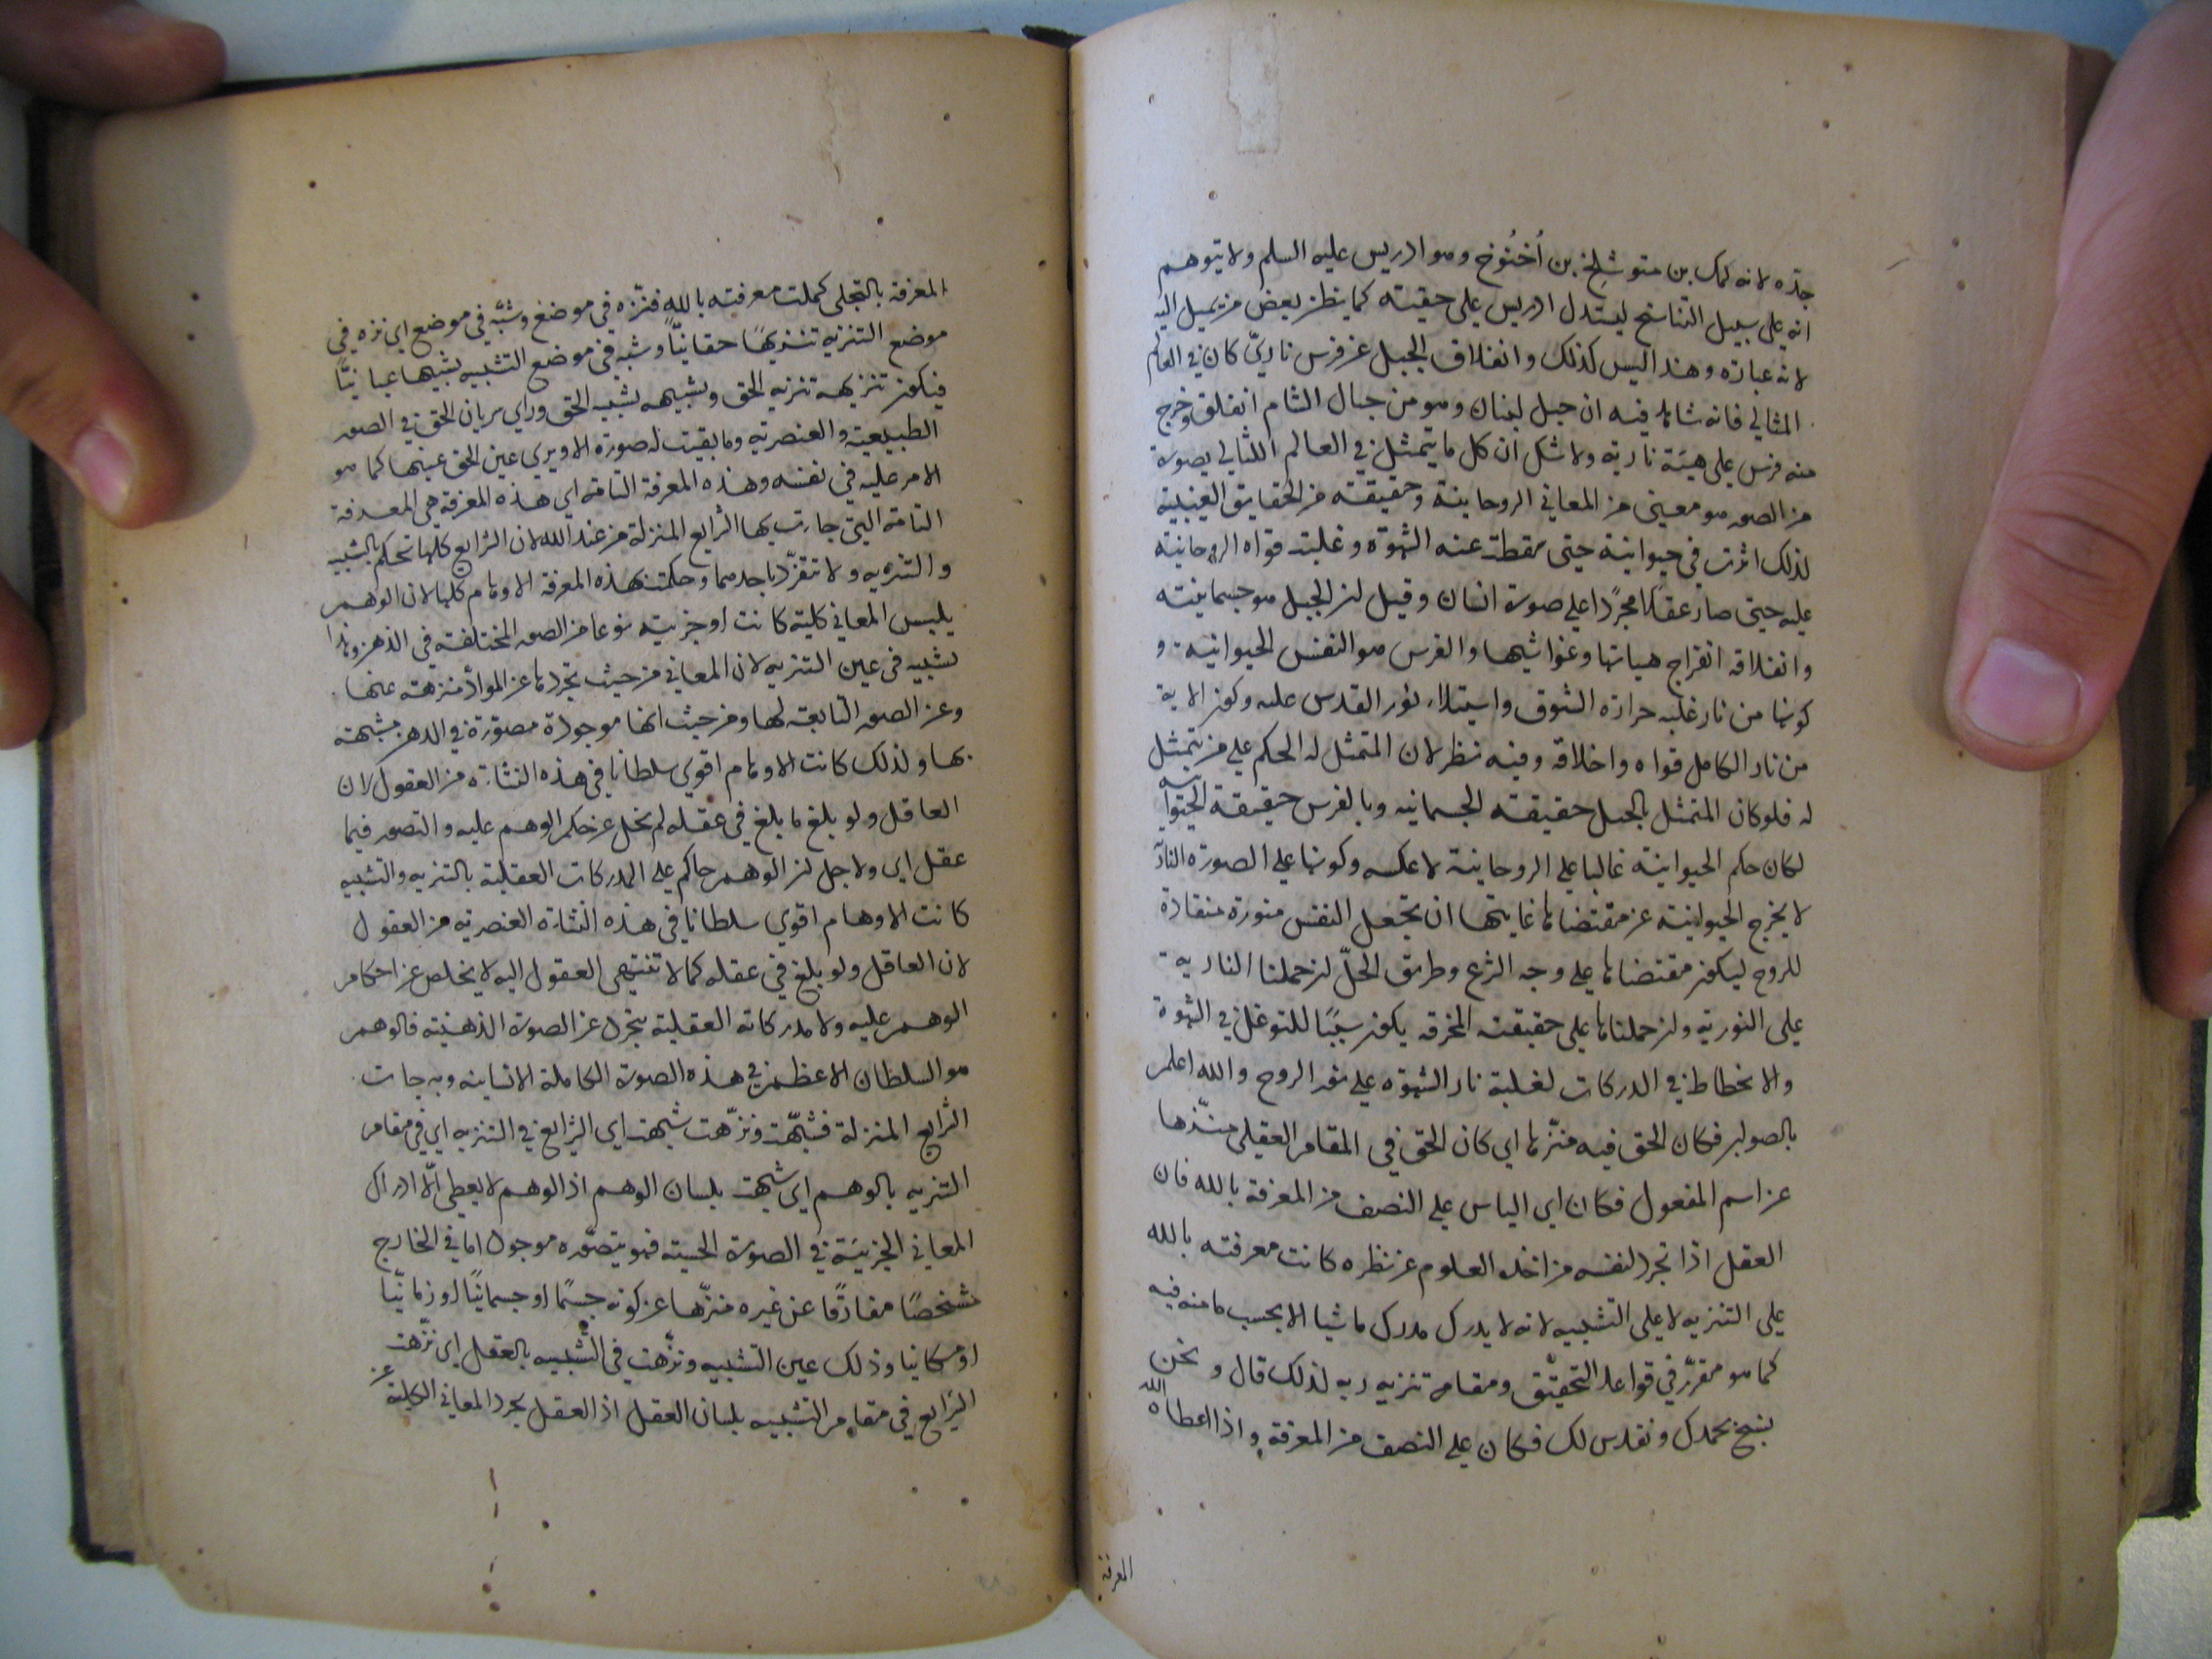 جدّه لانه لمك بن متوشلخ بن أُخنُوخ وهو ادريس عليه السلم ولا يتوهم
انه على سبيل التناسخ ليستدل ادريس على حقيته كما يظن بعض من يميل اليه
لانه عبارة وهذا ليس كذلك وانفلاق الجبل عن فرس ناريّ كان في العالم
المثالي فانه شاهد فيه ان جبل لبنان وهو من جبال الشام انفلق وخرج
منه فرس على هيئة نارية ولا شك ان كل ما يتمثل في العالم المثالي بصورة
من الصور هو معنى من المعاني الروحانية وحقيقته من الحقايق الغيبية
لذلك اثرت في حيوانية حتى سقطت عنه الشهوة وغلبت قواه الروحانية
عليه حتى صار عقلا مجرّدا على صورة انسان وقيل ان الجبل هو جسمانيته
وانفلاقه انفراج هياتها وغواشيها والفرس هو النفس الحيوانية و
كونها من نار غلبة حرارة الشوق واستيلاء نور القدس عليه وكون الاية
من نار الكامل قواه واخلاقه وفيه نظر لان المتمثل له الحكم على من يتمثل
له فلو كان المتمثل بالجبل حقيقته الجسمانيه وبالفرس حقيقة الحيوانيه
لكان حكم الحيوانية غالبا على الروحانية لا عكسه وكونها على الصورة النارّ
لا يخرج الحيوانية عن مقتضاها غايتها ان تجعل النفس منورة منقادة
للروح ليكون مقتضاها على وجه الشرع وطريق الحلّ ان حملنا النارية
على النورية وان حملناها على حقيقت المحرقه يكون سببًا للتوغل في الشهوة
والانحطاط في الدركات لغلبة نار الشهوة على نور الروح والله اعلم
بالصواب فكان الحق فيه منزّها اي كان الحق في المقام العقلي منزّها
عن اسم المفعول فكان اي الياس على النصف من المعرفة بالله فان
العقل اذا تجرد لنفسه من اخذه العلوم عن نظره كانت معرفته بالله
على التنزيه لا على التشبيه لانه لا يدرك مدرك ما شيا الا بحسب ما منه فيه
كما هو مقرّر في قواعد التحقيق ومقامه تنزيه ربه لذلك قال ونحن
نسبح بحمدك ونقدس لك فكان على النصف من المعرفة واذا اعطاه الله
المعرفة
المعرفة بالتجلى كملت معرفته بالله فنزّه في موضع وشبّه في موضع اي نزه في
موضع التنزيه تنزيهًا حقانيّا وشبه في موضع التشبيه تشبيها عيانيّا
فيكون تنزيهه تنزيه الحق وتشبيهه تشبيه الحق وراي سريان الحق في الصور
الطبيعية والعنصرية وما بقيت له صورة الا ويرى عين الحق عينها كما هو
الامر عليه في نفسه وهذه المعرفة التامة اي هذه المعرفة هي المعرفة
التامة التي جاءت بها الشرايع المنزلة من عند الله لان الشرايع كلها تحكم بالتشبيه
والتنزيه ولا تنفرّد باحدهما وحكمت بهذه المعرفة الاوهام كلها لان الوهم
يلبس المعاني كلية كانت او جزئية نوعا من الصور المختلفة في الذهن وهذا
تشبيه في عين التنزيه لان المعاني من حيث تجردها عن الموادّ منزهة عنها
وعن الصور التابعة لها ومن حيث انها موجودة مصوّرة في الذهن مشبهة
بها ولذلك كانت الاوهام اقوى سلطانا في هذه النشأة من العقول لان
العاقل ولو بلغ ما بلغ في عقله لم يخل عن حكم الوهم عليه والتصور فيما
عقل اي ولاجل ان الوهم حاكم على المدركات العقلية بالتنزيه والتشبيه
كانت الاوهام اقوى سلطانا في هذه النشاة العنصرية من العقول
لان العاقل ولو بلغ في عقله كما لا تنتهي العقول اليه لا يخلص عن احكام
الوهم عليه ولا مدركاته العقلية تتجرد عن الصورة الذهنية فالوهم
هو السلطان الاعظم في هذه الصورة الكاملة الانسانية وبه جاءت
الشرايع المنزلة فشبّهت ونزّهت شبهت اي الشرايع في التنزيه اي في مقام
التنزيه بالوهم اي شبهت بلسان الوهم اذ الوهم لا يعطى الّا ادراك
المعاني الجزئية في الصورة الحسية فهو يتصوّره موجودا ما في الخارج
مشخصًا مفارقًا عن غيره منزّها عن كونه جسمًا او جسمانيًا او زمانيّا
او مكانيا وذلك عين التشبيه ونزّهت في التشبيه بالعقل اي نزّهت
الشرايع في مقام التشبيه بلسان العقل اذ العقل يجرد المعاني الكلية عن